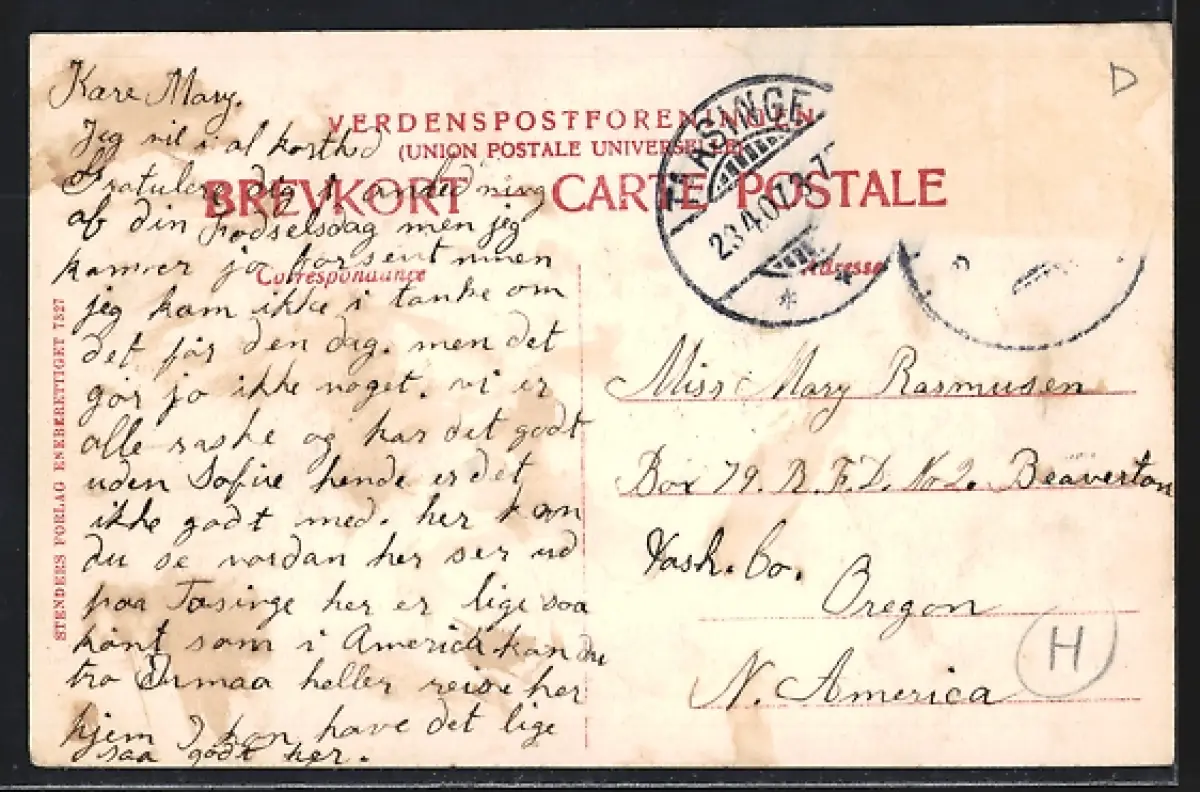 Kære Mary.
Jeg vil i al korthed
Gratulere dig i anledning
af din fødselsdag men jeg
kommer jo for sent men
jeg kom ikke i tanke om
det før den dag. men det
gør jo ikke noget. vi er
alle raske og har det godt
uden Sofie hende er det
ikke godt med. her kan
du se vordan her ser ud
paa Taasinge her er lige saa
kønt som i America kan du
tro I maa heller reise her
hjem I kan have det lige
saa godt her.
VERDENSPOSTFORENINGEN
(UNION POSTALE UNIVERSELLE)
BREVKORT — CARTE POSTALE
Correspondance
Adresse
STENDERS FORLAG ENEBERETTIGET 7327
TAASINGE
23.4.07.
D
Miss Mary Rasmusen
Box 79. R. F. D. No 2. Beaverton
Wash. Co.
Oregon
N. America
H